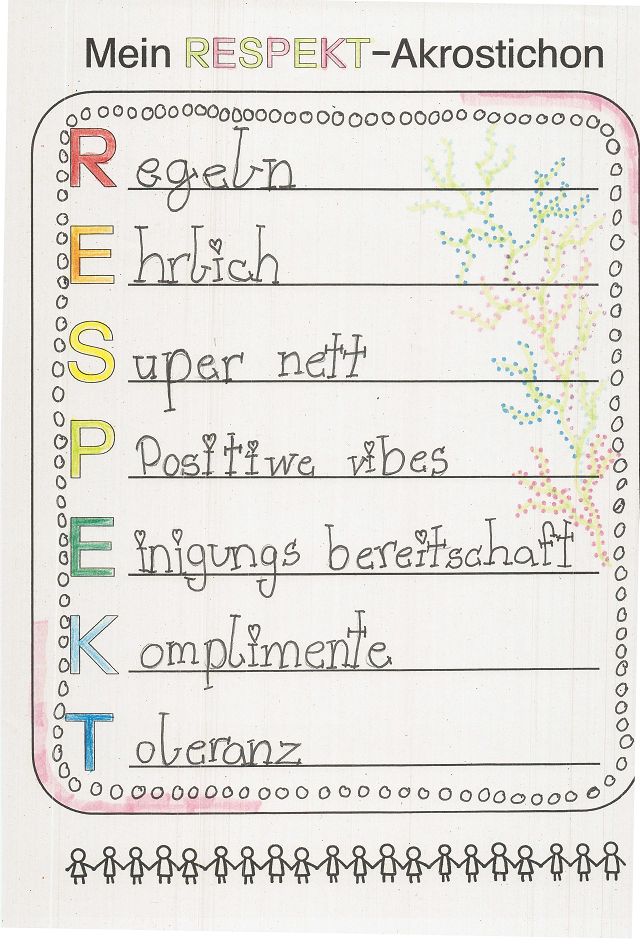 Mein RESPEKT-Akrostichon
Regeln
Ehrlich
Super nett
P Positiwe vibes
Einigungs bereitschaft
Komplimente
Toleranz